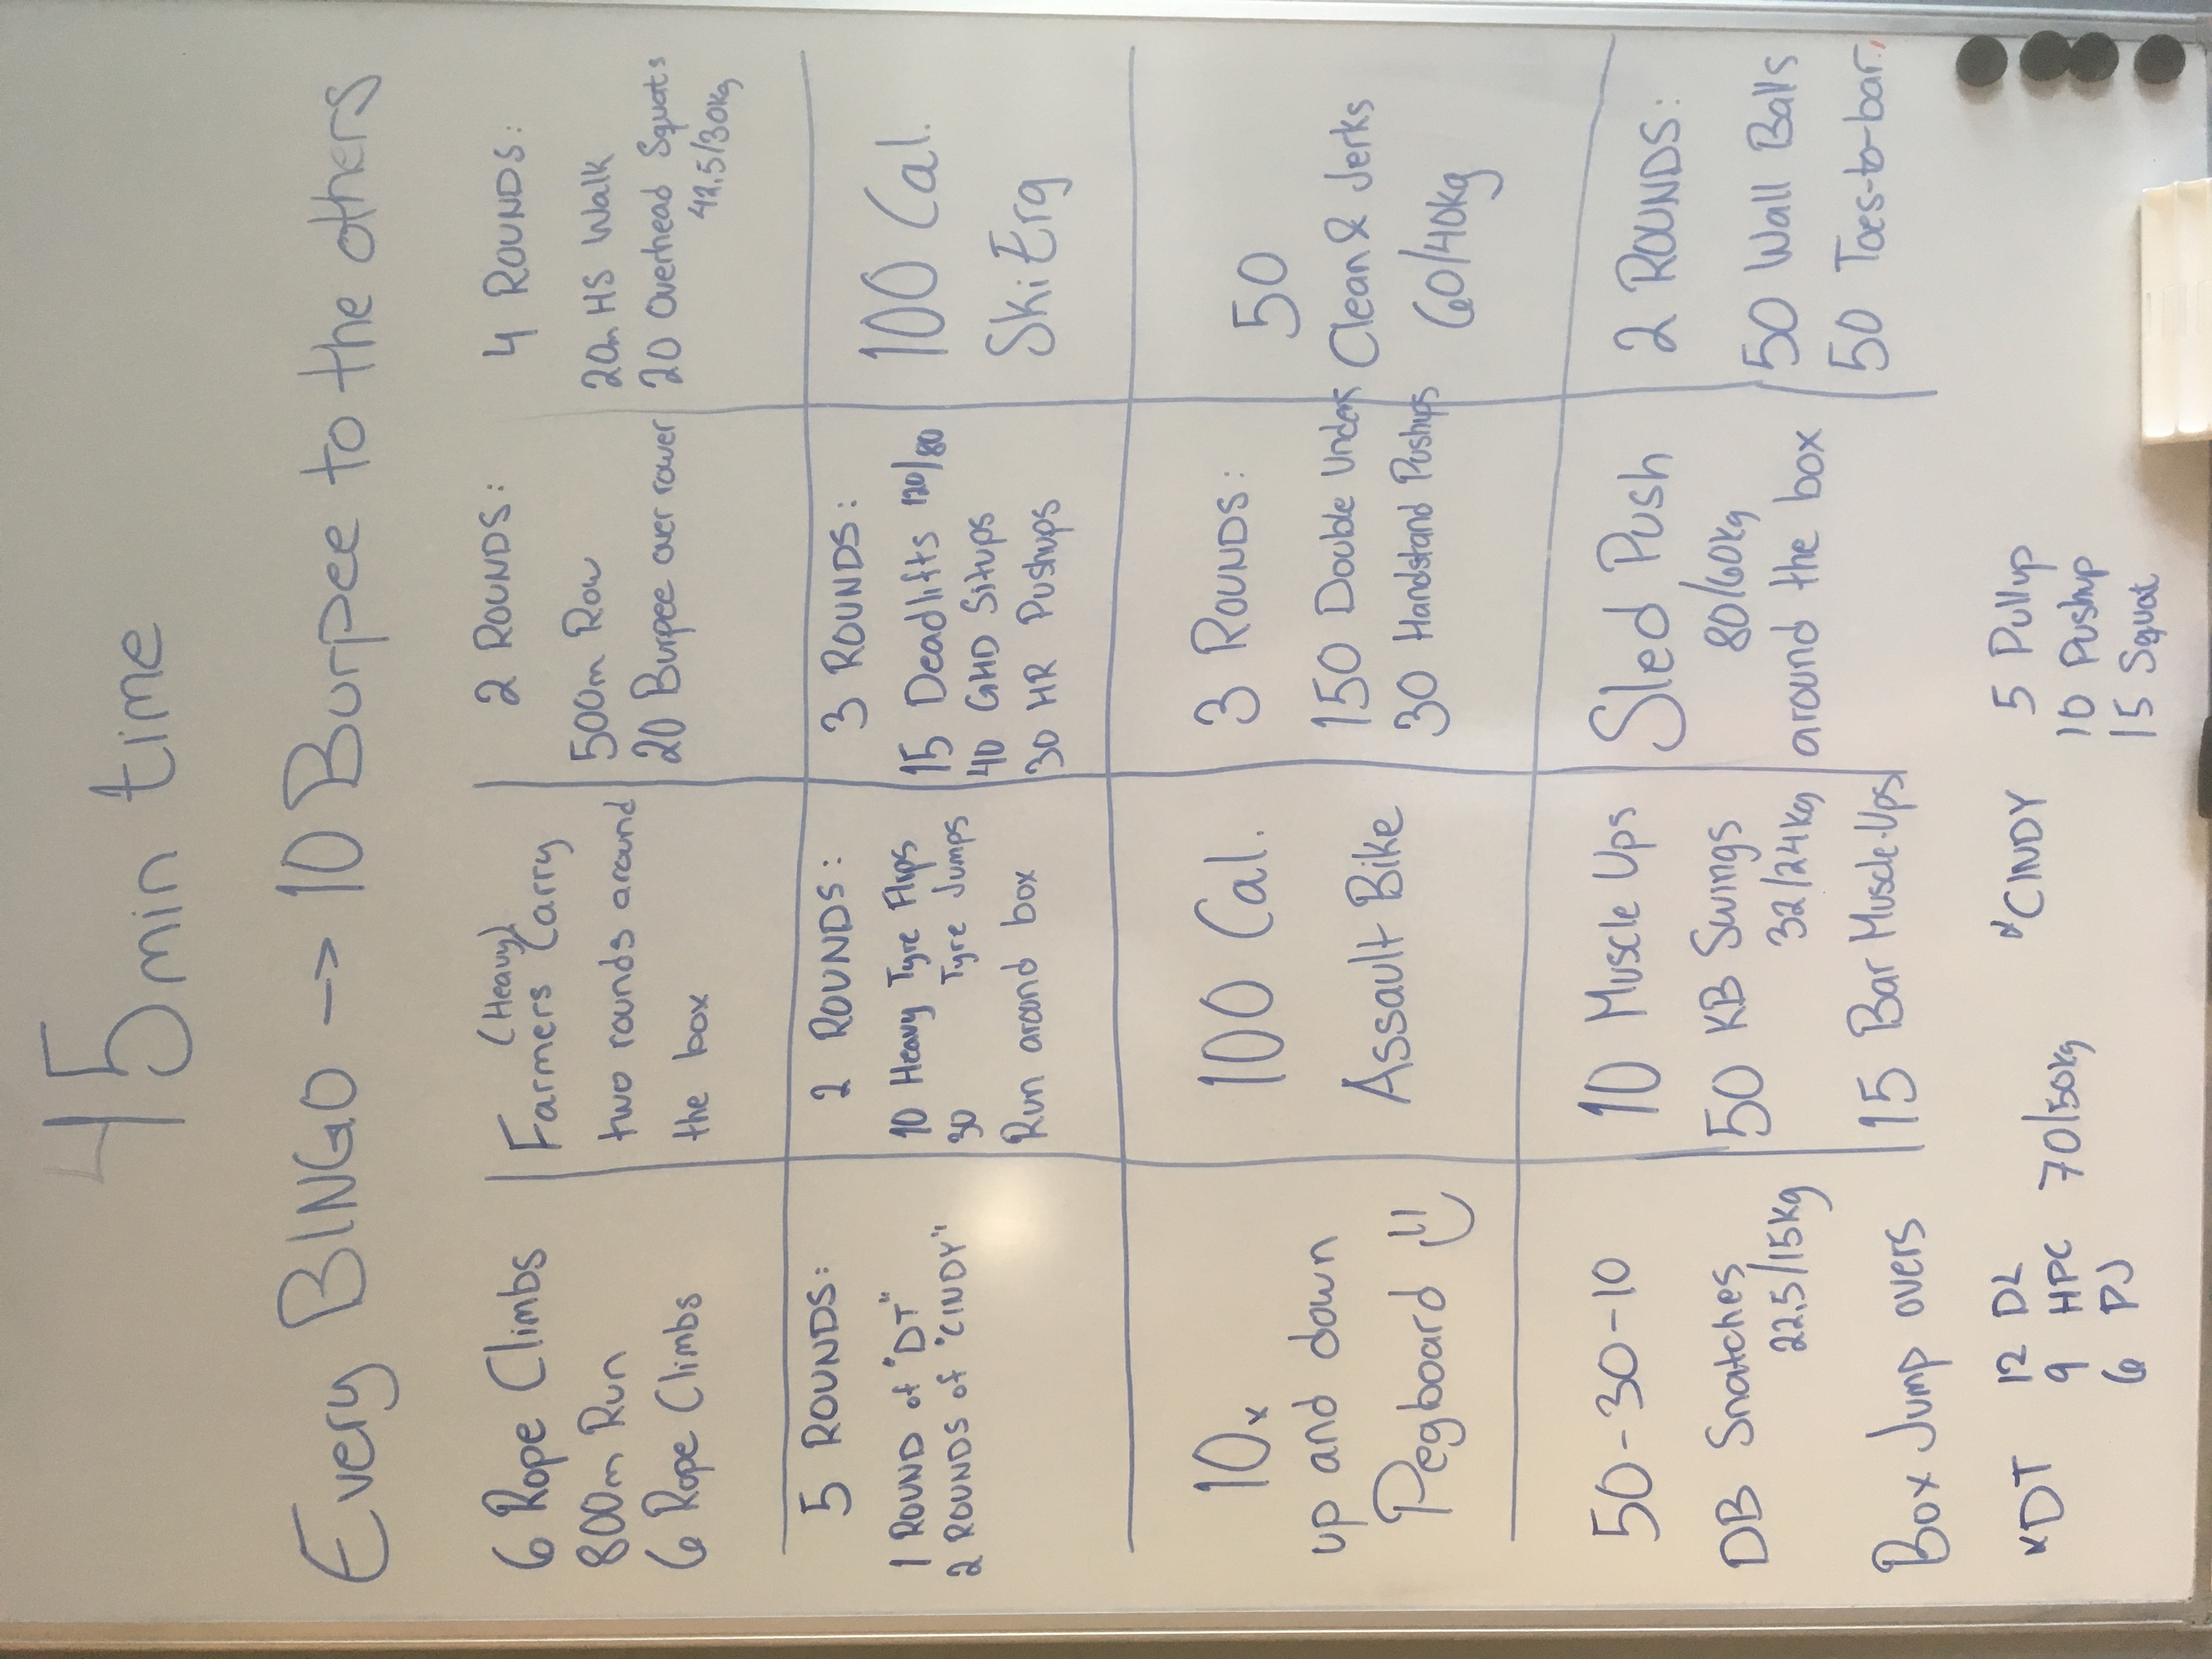 45 min time
Every BINGO -> 10 Burpee to the others
6 Rope Climbs
800m Run
6 Rope Climbs
(Heavy)
Farmers Carry
two rounds around
the box
2 ROUNDS:
500m Row
20 Burpee over rower
4 ROUNDS:
20m HS Walk
20 Overhead Squats
42,5/30kg
5 ROUNDS:
1 ROUND of "DT"
2 ROUNDS of "CINDY"
2 ROUNDS:
10 Heavy Tyre Flips
30 Tyre Jumps
Run around box
3 ROUNDS:
15 Deadlifts 120/80
40 GHD Situps
30 HR Pushups
100 Cal.
Ski Erg
10x
up and down
Pegboard
100 Cal.
Assault Bike
3 ROUNDS:
150 Double Unders
30 Handstand Pushups
50
Clean & Jerks
60/40kg
50-30-10
DB Snatches
22.5/15kg
Box Jump overs
10 Muscle Ups
50 KB Swings
32/24kg
15 Bar Muscle-Ups
Sled Push
80/60kg
around the box
2 ROUNDS:
50 Wall Balls
50 Toes-to-bar
"DT 12 DL
9 HPC 70/50kg
6 PJ
"CINDY 5 Pullup
10 Pushup
15 Squat